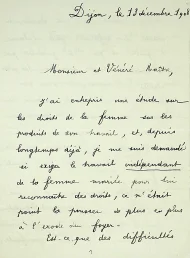 Dijon, le 13 décembre 190
Monsieur et Vénéré Maître,
J'ai entrepris une étude sur
les droits de la femme sur les
produits de son travail, et, depuis
longtemps déjà, je me suis demandé
si exiger le travail indépendant
de la femme mariée pour lui
reconnaître des droits, ce n'était
point la pousser de plus en plus
à l'exode du foyer.
Est-ce que des difficultés